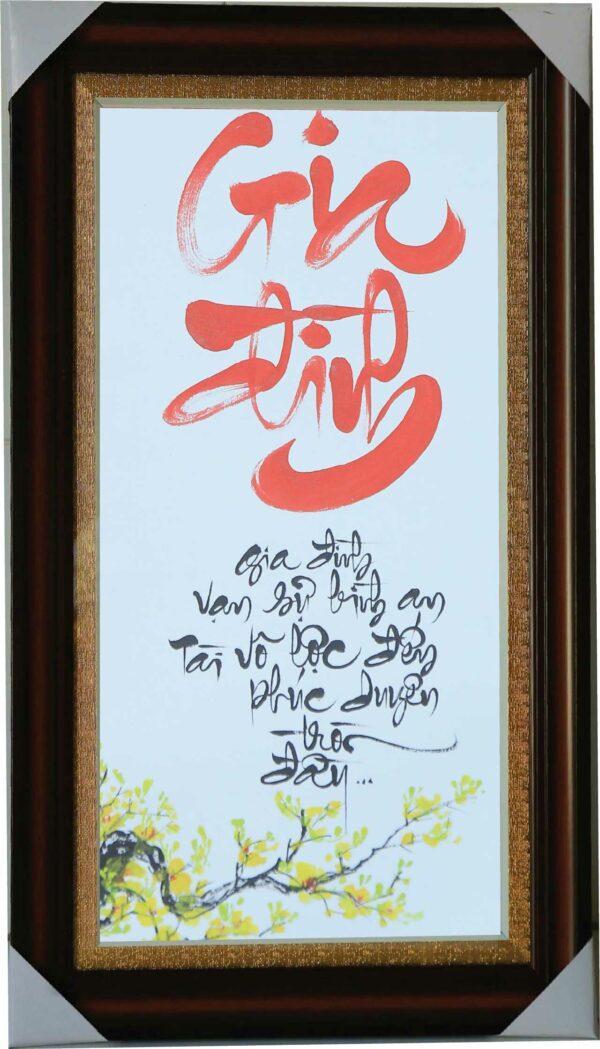 Gia
đình
Gia đình
vạn sự bình an
Tài vô lộc đến
phúc duyên
trổ
đầy...